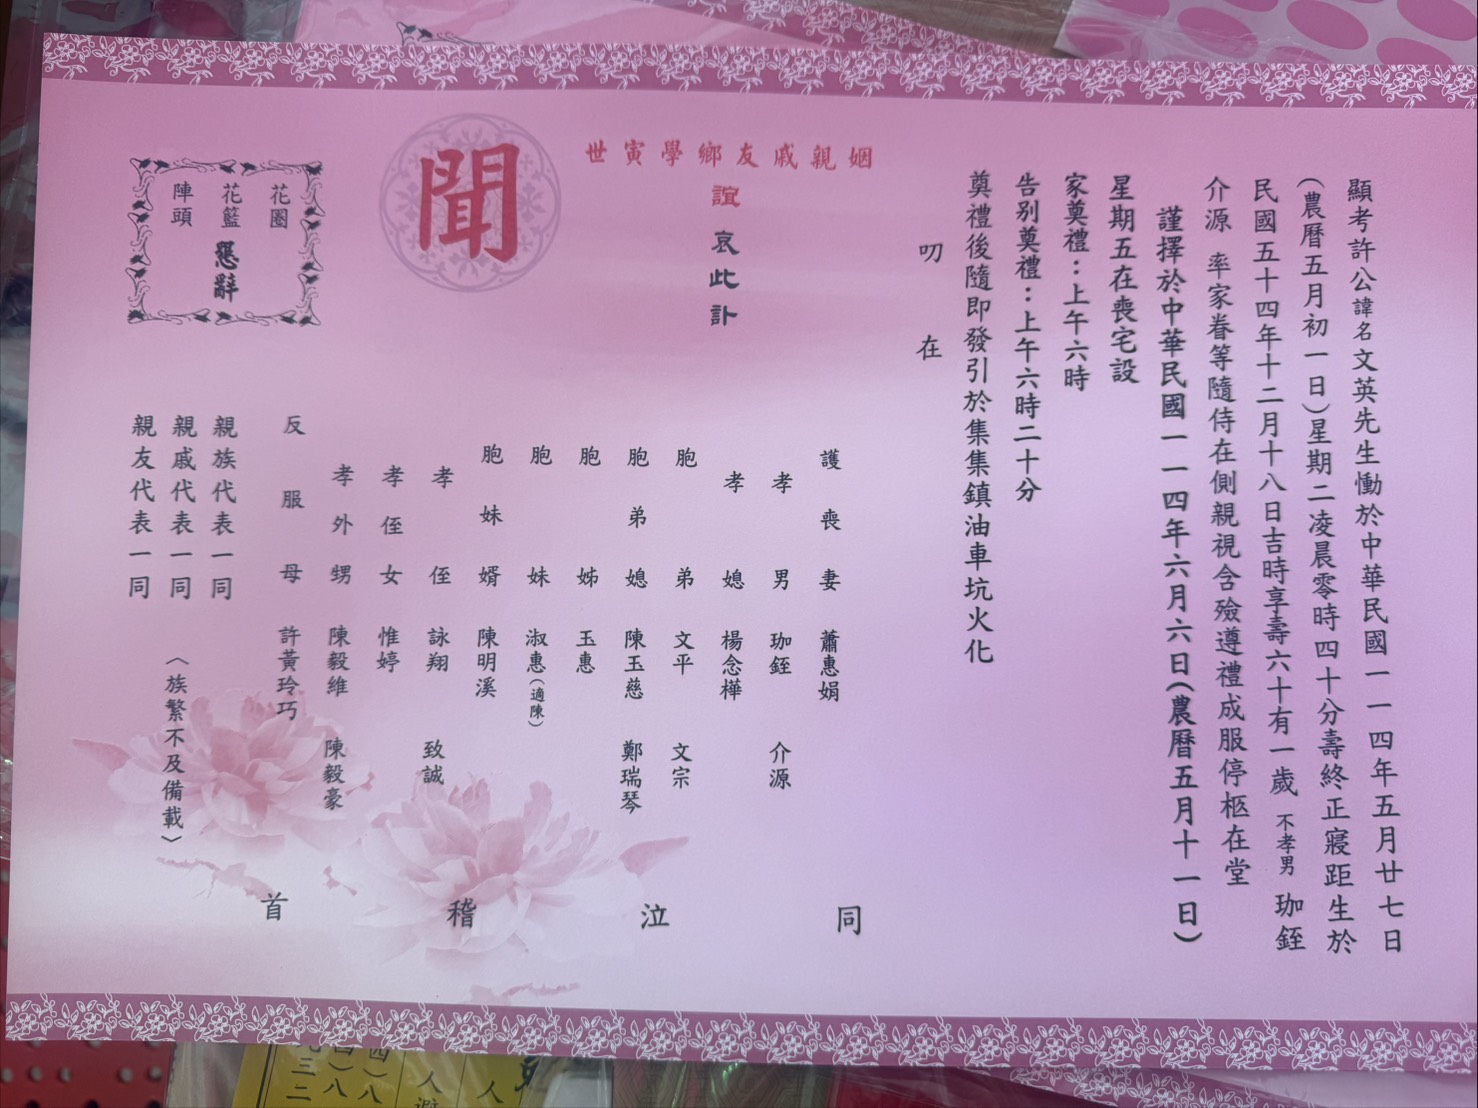 顯考許公諱名文英先生慟於中華民國一一四年五月廿七日
(農曆五月初一日)星期二凌晨零時四十分壽終正寢距生於
民國五十四年十二月十八日吉時享壽六十有一歲 不孝男 珈銍
介源 率家眷等隨侍在側親視含殮遵禮成服停柩在堂
謹擇於中華民國一一四年六月六日(農曆五月十一日)
星期五在喪宅設
家奠禮:上午六時
告別奠禮:上午六時二十分
奠禮後隨即發引於集集鎮油車坑火化
叨 在
姻親戚友鄉學寅世
誼
哀此訃
聞
護喪妻 蕭惠娟
孝男 珈銍 介源
孝媳 楊念樺
胞弟 文平 文宗
胞弟媳 陳玉慈 鄭瑞琴
胞姊 玉惠
胞妹 淑惠(適陳)
胞妹婿 陳明溪
孝侄 詠翔 致誠
孝侄女 惟婷
孝外甥 陳毅維 陳毅豪
反服母 許黃玲巧
同泣稽首
親族代表一同
親戚代表一同
親友代表一同
(族繁不及備載)
花圈
花籃
陣頭
懇辭
人
人避